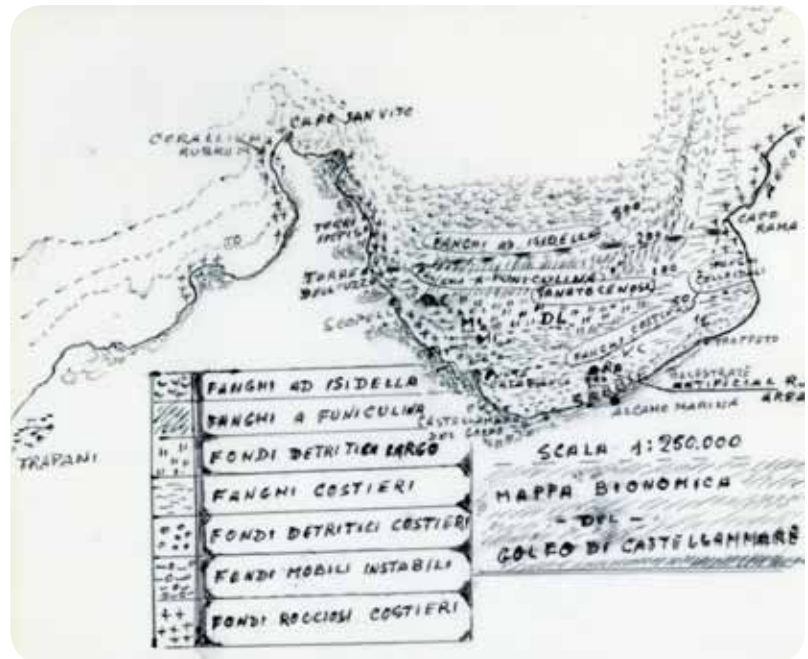 CAPO SAN VITO
CORALLIUM
RUBRUM
CAPO
RAMA
FANGHI AD ISIDELLA
500
200
100
FANGHI A FUNICULINA
(TANATOCENOSI)
50
50
DL
FANGHI COSTIERI
TORRE
DELL'UZZO
SCOPELLO
TRAPPETO
BALESTRATE
ARTIFICIAL
SABBIE
ALCAMO MARINA
CASTELLAMMARE
DEL GOLFO
TRAPANI
FANGHI AD ISIDELLA
FANGHI A FUNICULINA
FONDI DETRITICI LARGO
FANGHI COSTIERI
FONDI DETRITICI COSTIERI
FONDI MOBILI INSTABILI
FONDI ROCCIOSI COSTIERI
SCALA 1:250.000
MAPPA BIONOMICA
- DEL -
GOLFO DI CASTELLAMMARE